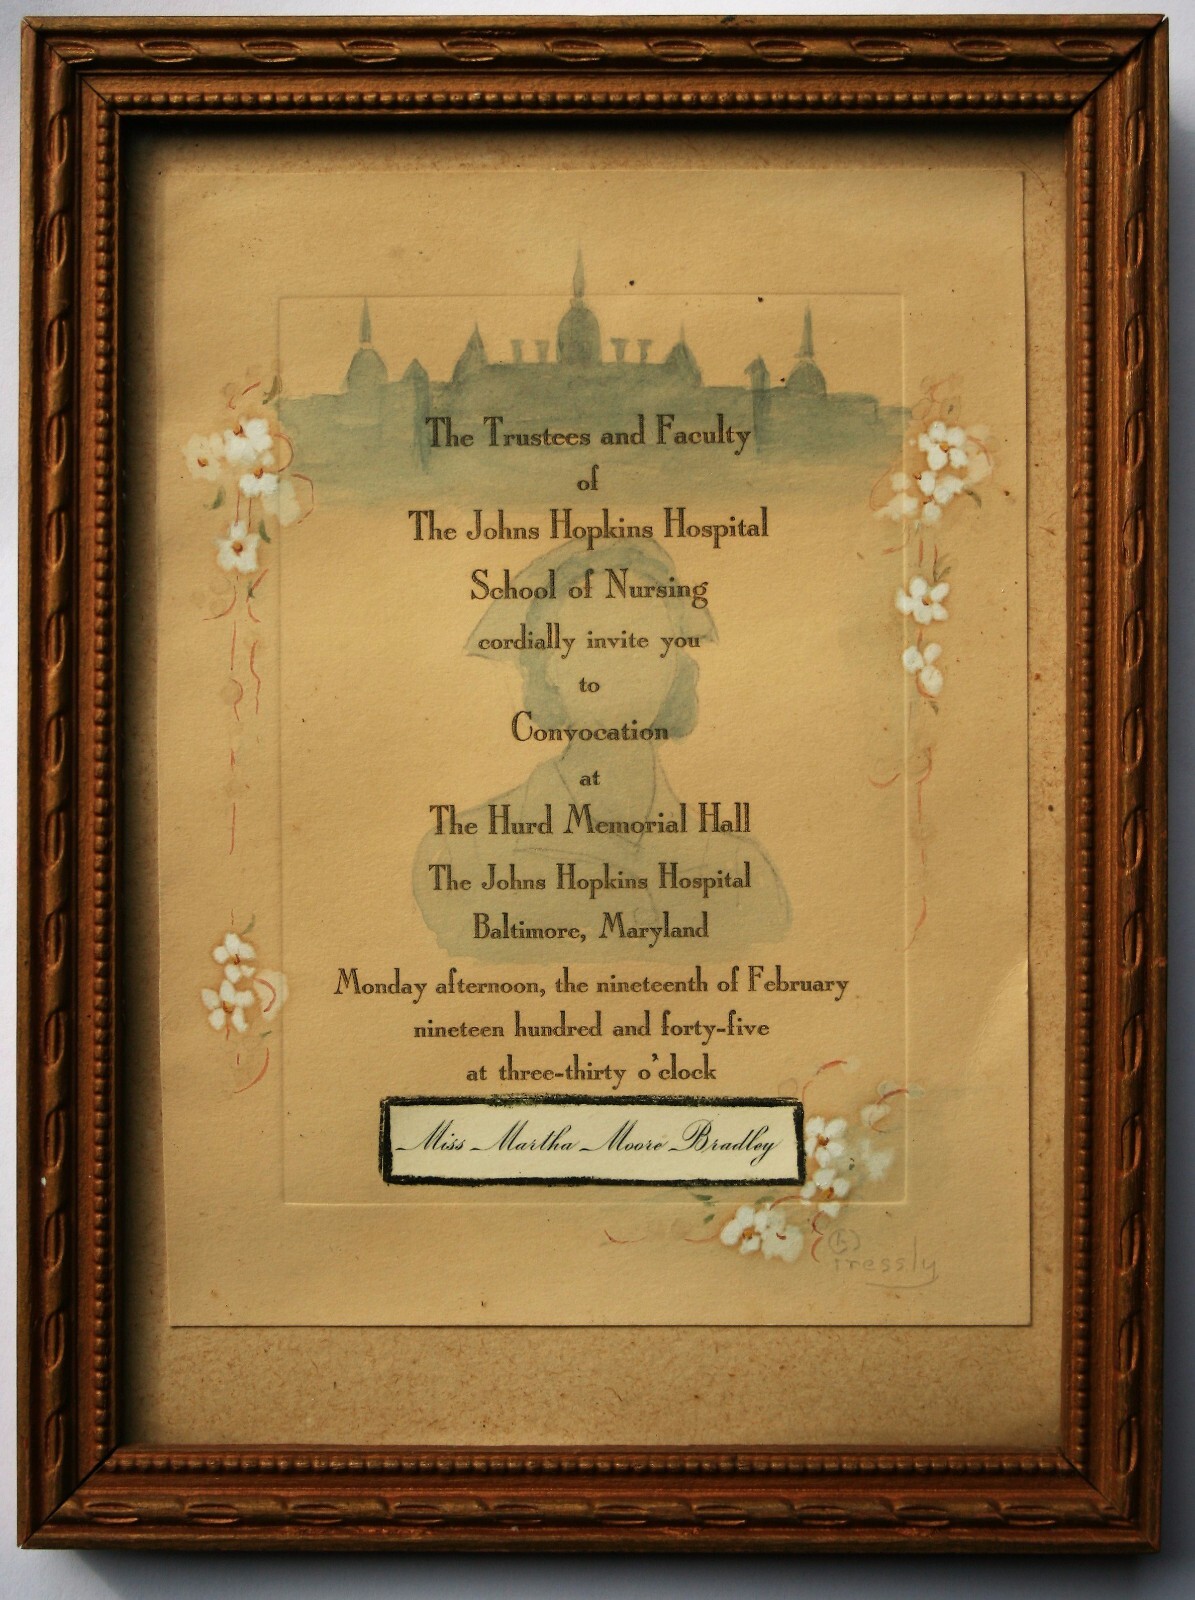 The Trustees and Faculty
of
The Johns Hopkins Hospital
School of Nursing
cordially invite you
to
Convocation
at
The Hurd Memorial Hall
The Johns Hopkins Hospital
Baltimore, Maryland
Monday afternoon, the nineteenth of February
nineteen hundred and forty-five
at three-thirty o'clock
Miss Martha Moore Bradley